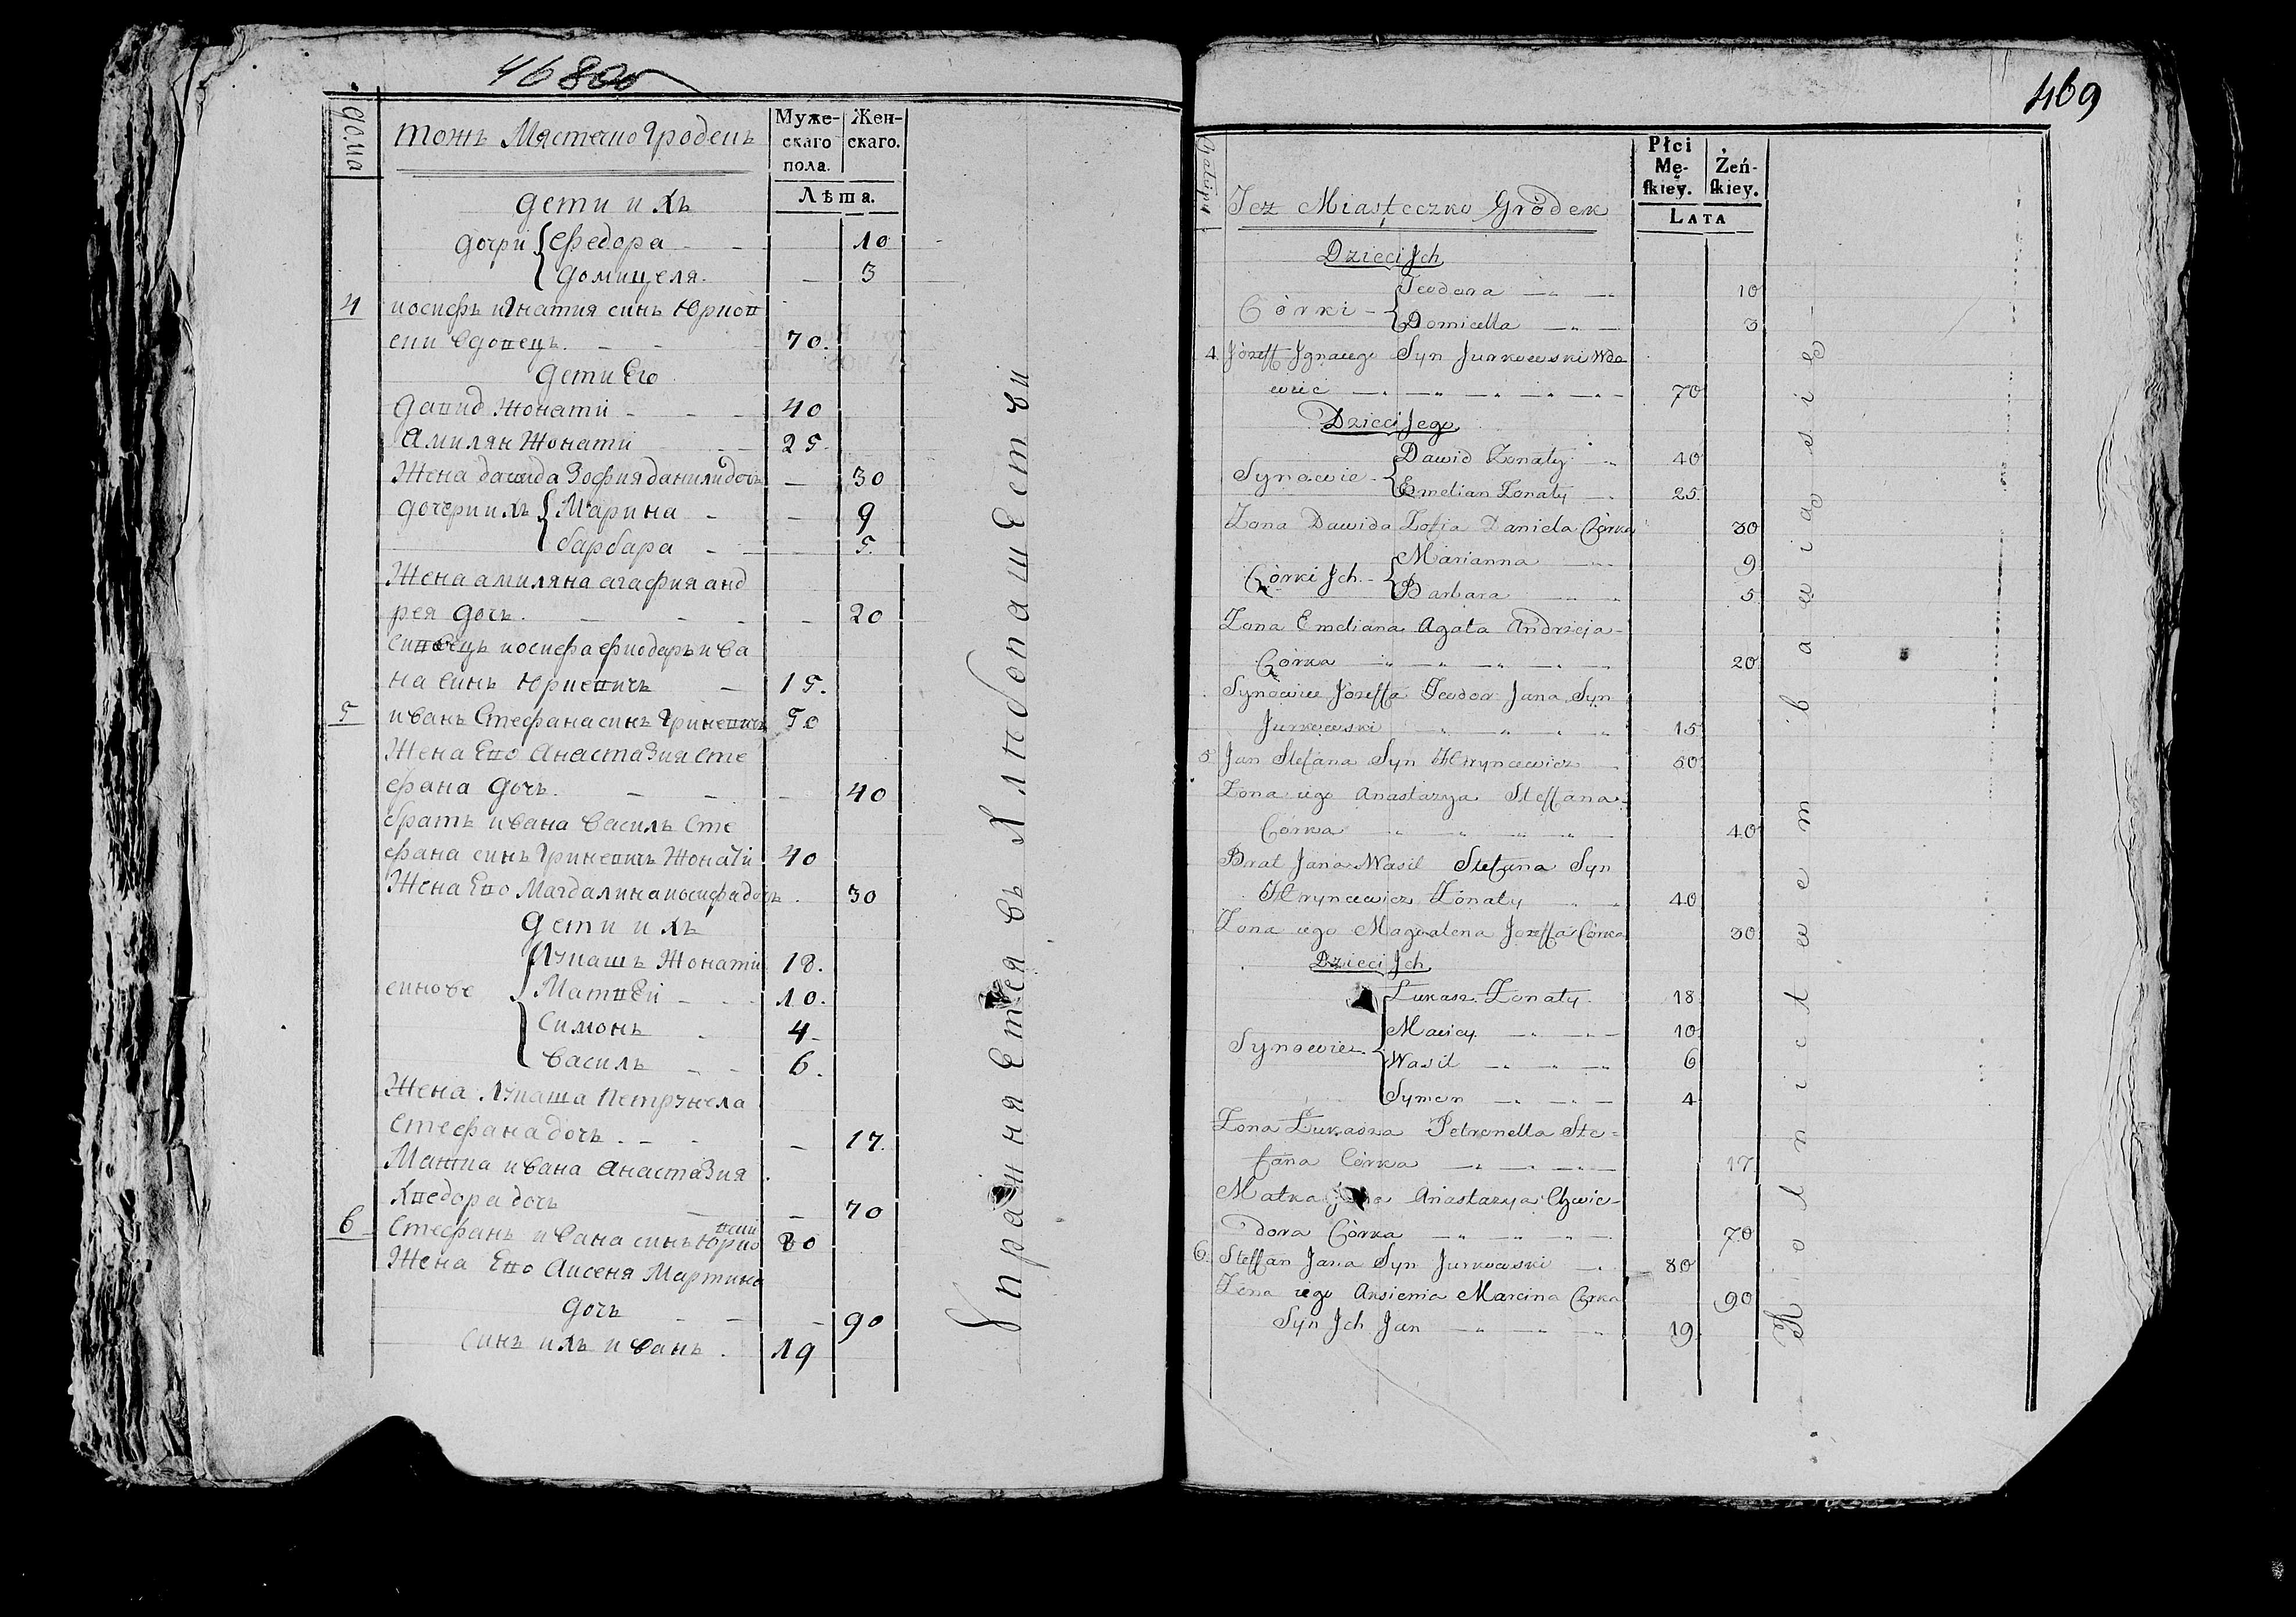 468об
дома
тожъ Мястечко Гродекъ
Муже-
скаго
пола.
Жен-
скаго.
Лѣта.
дети ихъ
дочри { Федора - - 10
домицеля. - 3
4 иосифъ игнатия синъ Юрков
ски вдовецъ. - - 70.
дети Его
давид Жонати - - - 40
Амилян Жонати - - 25.
Жена давида Зофия данили дочъ - 30
дочери ихъ { Марина - - 9
барбара - - 5.
Жена амиляна агафия анд
рея дочъ. - - - - 20
синовецъ иосифа фиодаръ ива
на синъ Юркевичъ - 15.
5 иванъ Стефана синъ Гриневичъ 50
Жена Ево Анастазия Сте
фана дочъ. - - - 40
братъ ивана василь Сте
фана синъ Гриневичъ Жонати 40
Жена Ево Магдалина иосифа дочъ. 30
дети ихъ
Лукашъ Жонати 18.
синове { Матвей - - 10.
Симонъ - 4-
василь - - 6.
Жена Лукаша Петрунела
Стефана дочъ. - - - 17.
Матка ивана Анастазия
Хведора дочъ - - 70
6 Стефанъ ивана синъ Юрковски 80
Жена Ево Аксеня Мартина
дочъ - - - 90
Синъ ихъ иванъ. 19
Упражняется въ Хлебопашестви
469
Tez Miasteczko Gròdek
Płci
Mę-
ſkiey.
Żeń-
ſkiey.
LATA
Dzieci Jch
Còrki - { Teodora — " — 10
Domicella — " — 3
4 Jòzeff Jgnacego Syn Jurkowski Wdo
wiec — " — " — " — " — 70
Dzieci Jego
Synowie - { Dawid Zonaty " 40
Emelian Zonaty — 25
Zona Dawida Zofia Daniela Còrka 30
Còrki Jch - { Marianna — " — 9
Barbara — " 5
Zona Emeliana Agata Andrzeja -
Còrka — " — " — " — " — 20
Synowiec Jòzeffa Teodor Jana Syn
Jurkowski " — " — " — " 15
5 Jan Stefana Syn Hryncewicz — 50
Zona iego Anastazya Steffana -
Còrka — " — " — " — " — 40
Brat Jana Wasil Stefana Syn
Hryncewicz Zonaty — " — 40
Zona iego Magdalena Jozeffa Còrka 30
Dzieci Jch
Łukasz Zonaty 18
Synowie { Maciey — " — " — 10
Wasil — " — " — 6
Symon — " — " — 4
Zona Łukasza Petronella Ste =
fana Còrka — " — " — 17
Matka Jana Anastazya Chwie -
dora Còrka — " — " — " — 70
6. Steffan Jana Syn Jurkowski — " 80
Zona iego Aksienia Marcina Corka 90
Syn Jch Jan — " — " — " 19.
Rolnictwem bawią się